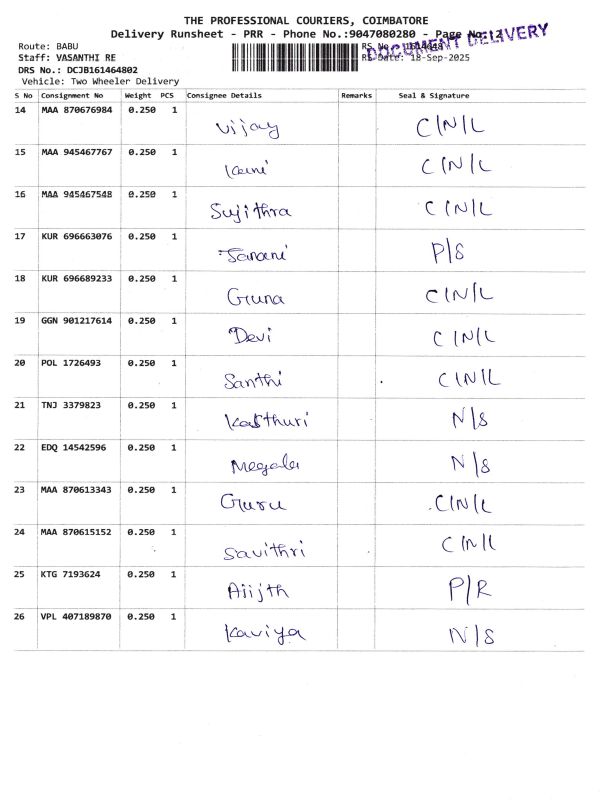 THE PROFESSIONAL COURIERS, COIMBATORE
Delivery Runsheet - PRR - Phone No.:9047080280 - Page No.:2
DOCUMENT DELIVERY
Route: BABU
RS No.
Staff: VASANTHI RE
RS Date: 18-Sep-2025
DRS No.: DCJB161464802
Vehicle: Two Wheeler Delivery
S No Consignment No Weight PCS Consignee Details Remarks Seal & Signature
14 MAA 870676984 0.250 1 Vijay C/N/L
15 MAA 945467767 0.250 1 C/N/L
16 MAA 945467548 0.250 1 Sujithra C/N/L
17 KUR 696663076 0.250 1 Janani P/S
18 KUR 696689233 0.250 1 Guna C/N/L
19 GGN 901217614 0.250 1 Devi C/N/L
20 POL 1726493 0.250 1 Santhi C/N/L
21 TNJ 3379823 0.250 1 Kasthuri N/S
22 EDQ 14542596 0.250 1 Megala N/S
23 MAA 870613343 0.250 1 Guru C/N/L
24 MAA 870615152 0.250 1 Savithri C/N/L
25 KTG 7193624 0.250 1 Aiijth P/R
26 VPL 407189870 0.250 1 Kaviya N/S